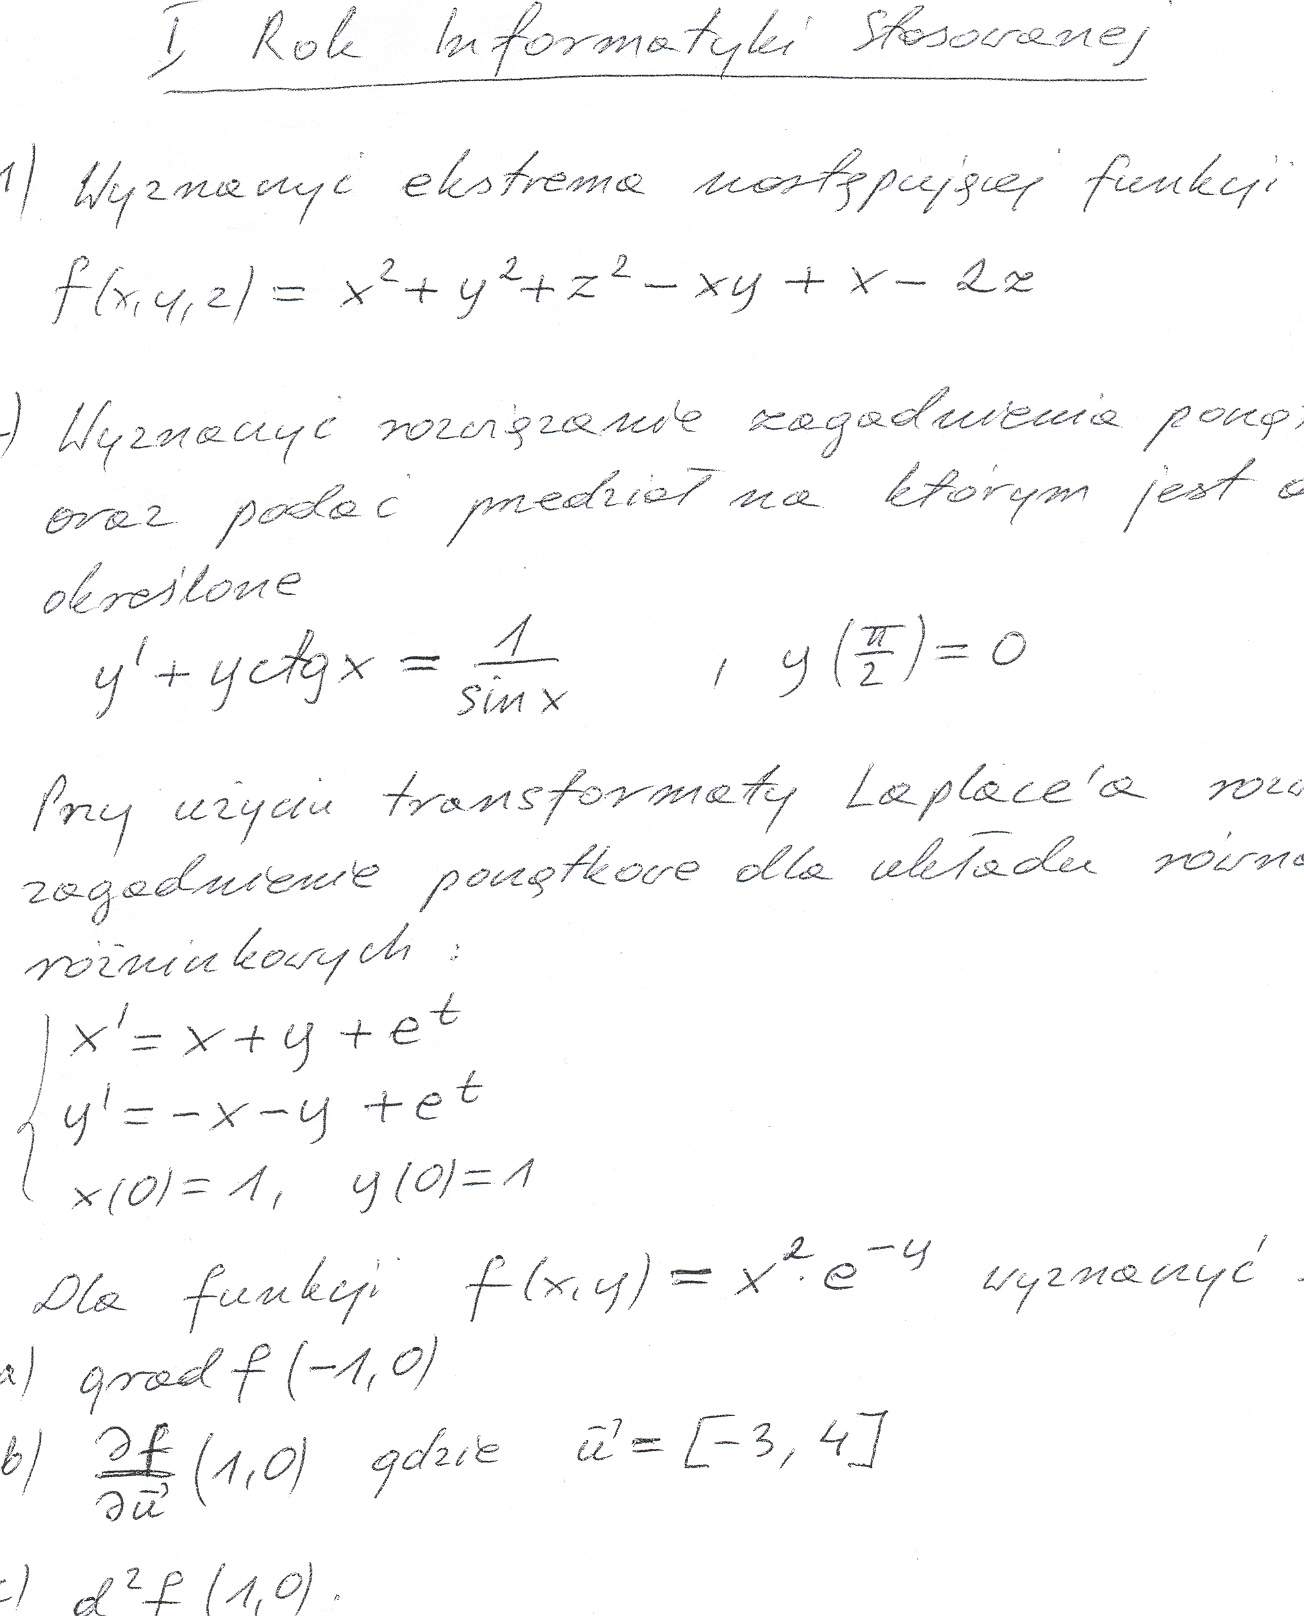 I Rok Informatyki Stosowanej
1) Wyznaczyć ekstrema następującej funkcji
f(x,y,z) = x² + y² + z² - xy + x - 2z
) Wyznaczyć rozwiązanie zagadnienia począt
oraz podać przedział na którym jest o
określone
y' + y ctg x = 1/sin x , y(π/2) = 0
Przy użyciu transformaty Laplace'a rozw
zagadnienie początkowe dla układu równa
różniczkowych:
x' = x + y + e^t
y' = -x - y + e^t
x(0) = 1, y(0) = 1
Dla funkcji f(x,y) = x² · e^-y wyznaczyć
a) grad f (-1,0)
b) ∂f/∂u⃗ (1,0) gdzie u⃗ = [-3, 4]
c) d²f (1,0).